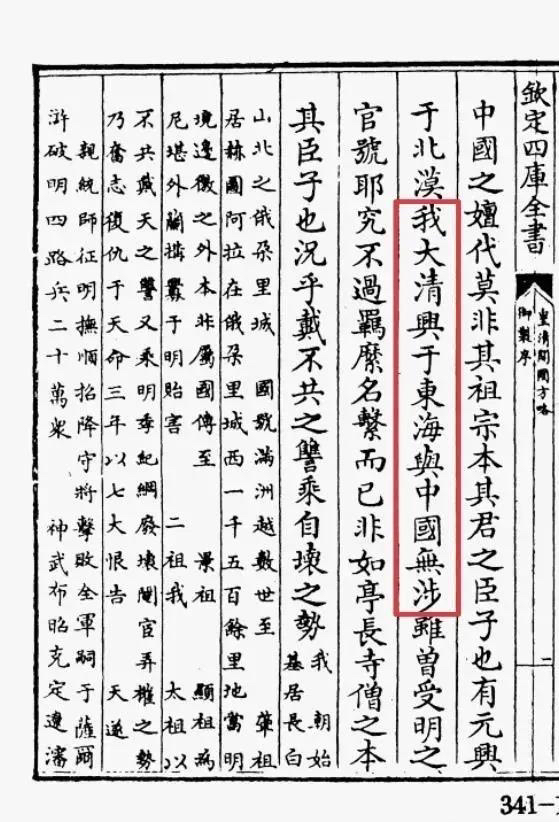 欽定四庫全書
皇清開國方略
御製序
二
中國之嬗代莫非其祖宗本其君之臣子也有元興
于北漠我大清興于東海與中國無涉雖曾受明之
官號耶究不過羈縻名繫而已非如亭長寺僧之本
其臣子也況乎戴不共之讐乘自壞之勢
我 朝始
基居長白
山北之俄朶里城 國號滿洲越數世至 肇祖
居赫圖阿拉在俄朶里城西一千五百餘里地當明
境邊徼之外本非屬國傳至 景祖 顯祖為
尼堪外蘭搆釁于明貽害 二祖我 太祖以
不共戴天之讐又乘明季紀綱廢壞閹官弄權之勢
乃奮志復仇于天命三年以七大恨告 天遂
親統師征明撫順招降守將擊敗全軍嗣于薩爾
滸破明四路兵二十萬衆 神武布昭克定遼瀋
341-